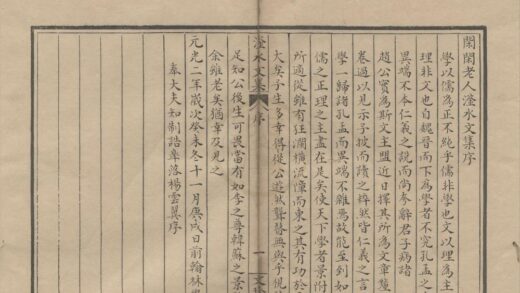 閑閑老人滏水文集序
學以儒為正不純乎儒非學也文以理為主
理非文也自魏晉而下為學者不究孔孟之
異端不本仁義之說而尚夸辭君子病諸
趙公實為斯文主盟近日擇其所為文章釐
卷過以見示予披而讀之粹然皆仁義之言
學一歸諸孔孟而異端不雜焉故能至到如
儒之正理之主盡在是矣使天下學者景附
所適從雖有狂瀾橫流障而東之其有功於
大矣予生多幸得從公遊然聾瞽無與乎視
滏水文集 序 一
足知公後生可畏當有如李之尊韓蘇之景
余雖老矣猶幸及見之
元光二年歲次癸未冬十一月庚戌日前翰林
奉大夫知制誥皋落楊雲翼序